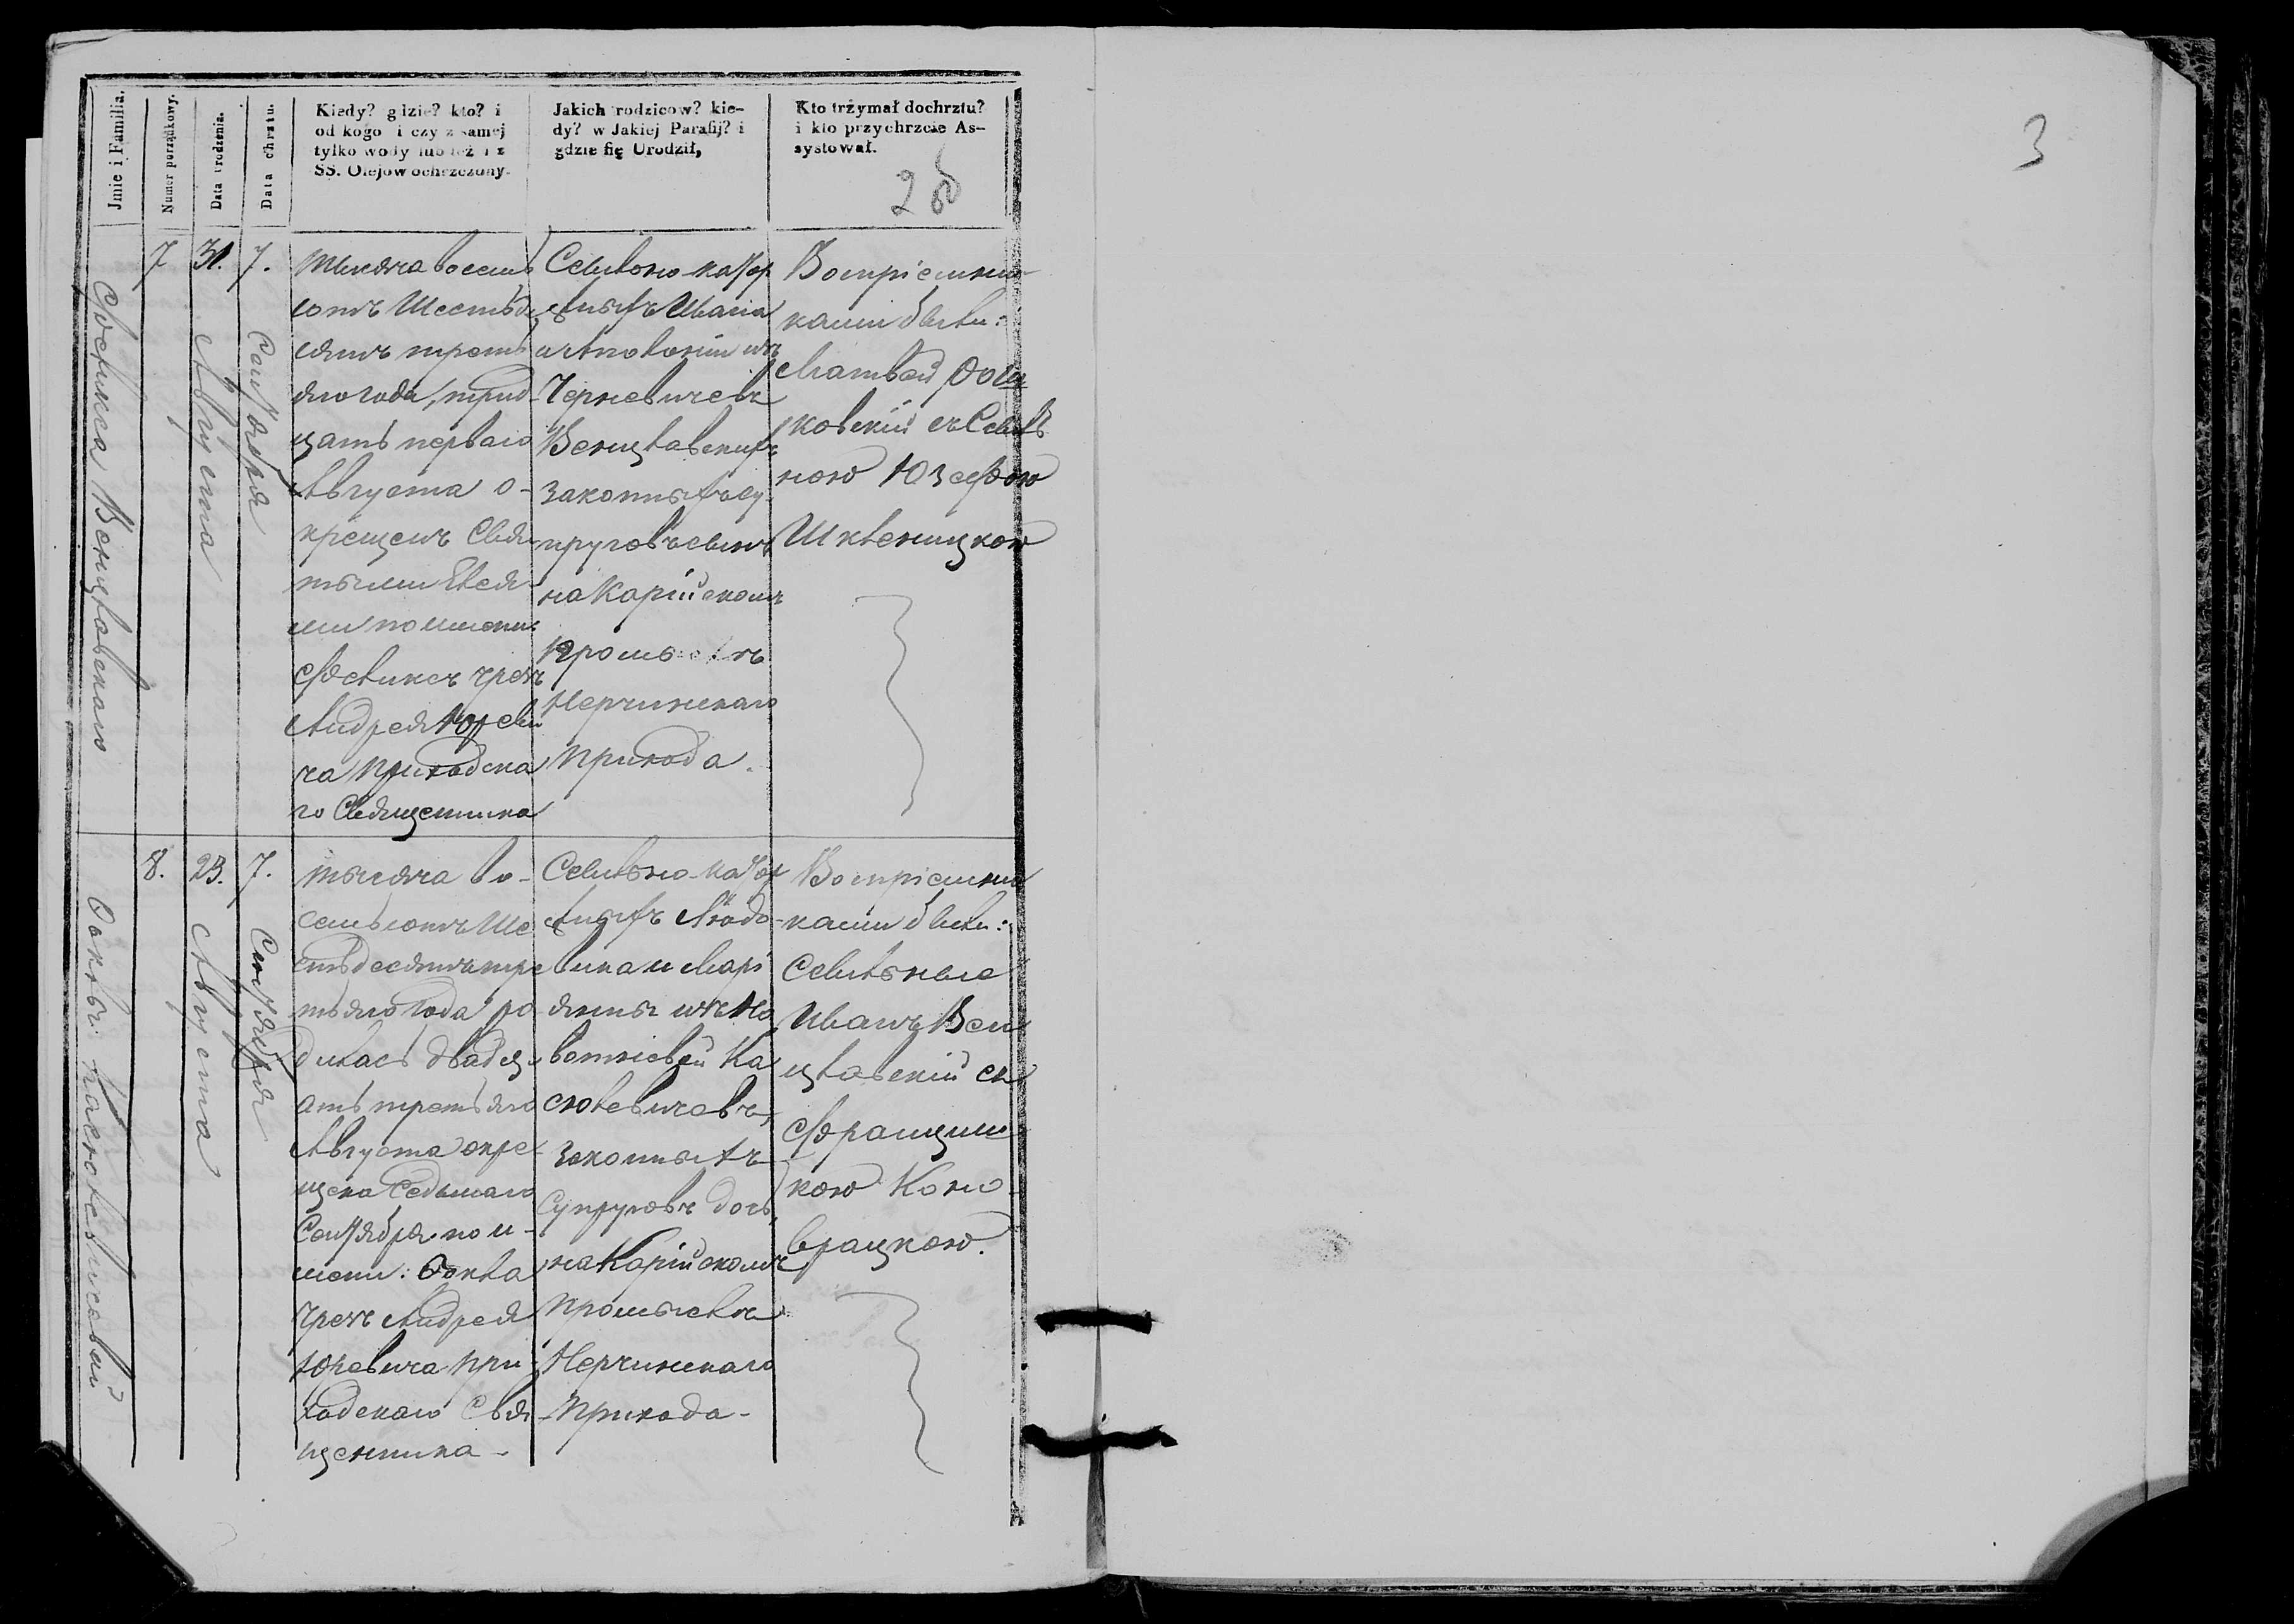 Jmie i Familia.
Numer porządkowy.
Data urodzenia.
Data chrztu.
Kiedy? gdzie? kto? i
od kogo i czy z samej
tylko wody lub też i z
SS. Olejow ochrzczony.
Jakich rodzicow? kie-
dy? w Jakiej Parafij? i
gdzie fię Urodził,
Kto trzymał dochrztu?
i kto przychrzcie As-
systował.
2 об
3
Феликса Венцловскаго
7
31.
Августа
7.
Сентября
тысяча восемь
сотъ Шестьде
сятъ треть
яго года, трид-
цать перваго
Августа о-
крещенъ Свя-
тымъ Елея-
ми по имени:
Феликсъ чрезъ
Андрея Юреви
ча Приходска
го Священника
Сельвоно-катор
жныхъ Ивана
и Аполоніи изъ
Черневичевъ
Венцлавскихъ
законныхъ су-
пруговъ сынъ
на Карійскомъ
Промыслѣ
Нерчинскаго
Прихода.
Воспріемни-
ками были:
Матвѣй
ковскій съ
ною Юзефою
Шкленицкою
Ѳеклы
8.
23.
Августа
7.
Сентября
тысяча во-
семьсотъ Ше
стьдесятъ тре
тьяго Года ро
дилась двадц-
ать третьяго
Августа окре-
щена Седьмаго
Сентября по и-
мени: Ѳекла
чрезъ Андрея
Юревича при-
ходскаго Свя
щенника -
Сельвоно-катор
жныхъ Людо-
вика и Марі
янны изъ
Ка
сюлевичевъ,
законныхъ
Супруговъ дочь,
на Карійскомъ
промыслѣ
Нерчинскаго
Прихода -
Воспріемни
ками были:
Ивангъ Вен
цлавскій съ
Францишк
кою Коно-
врацкою.